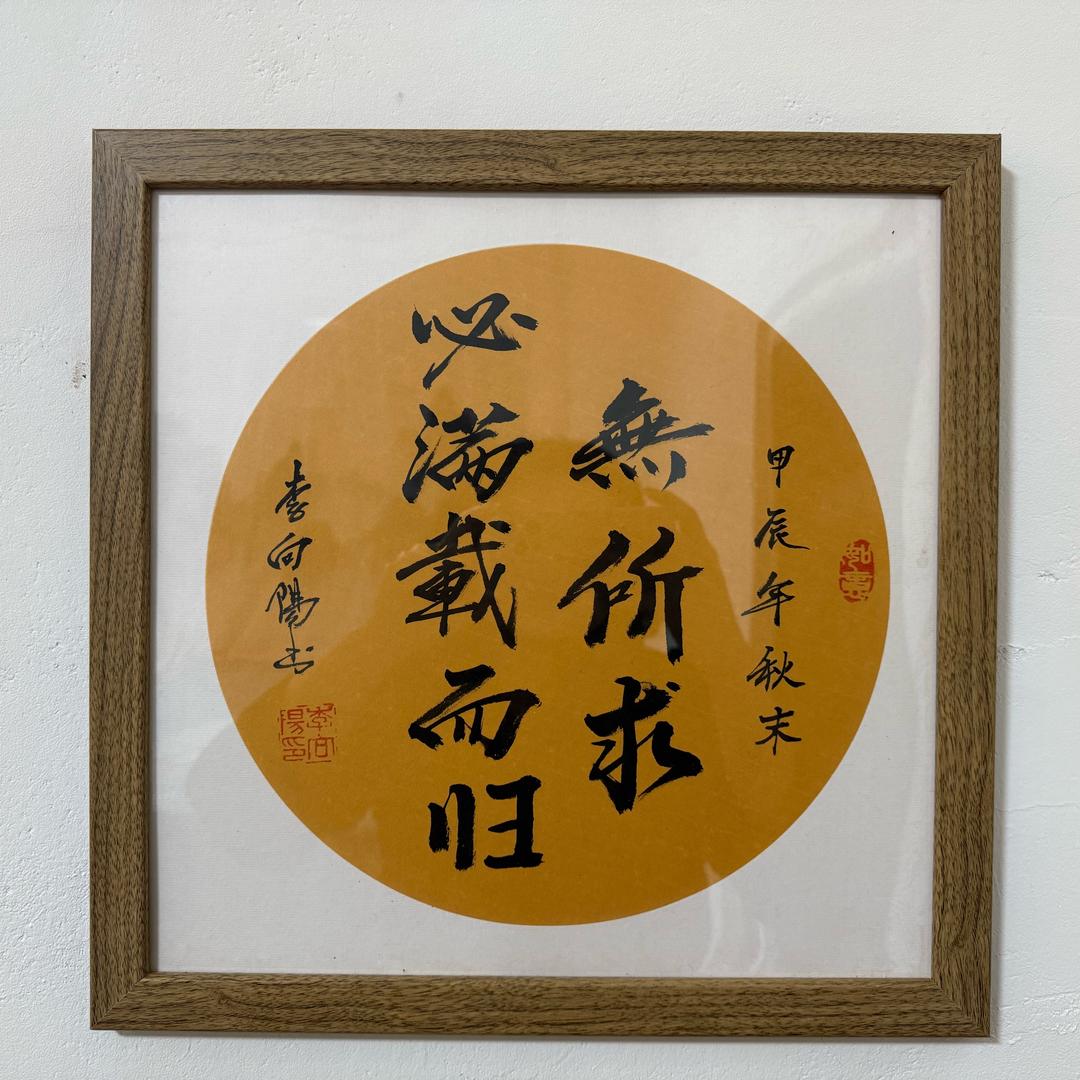 如意
甲辰年秋末
無所求
必满載而归
李向陽书
李向陽印